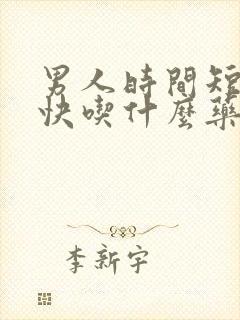 男人時間短
快喫什麼藥
李新宇